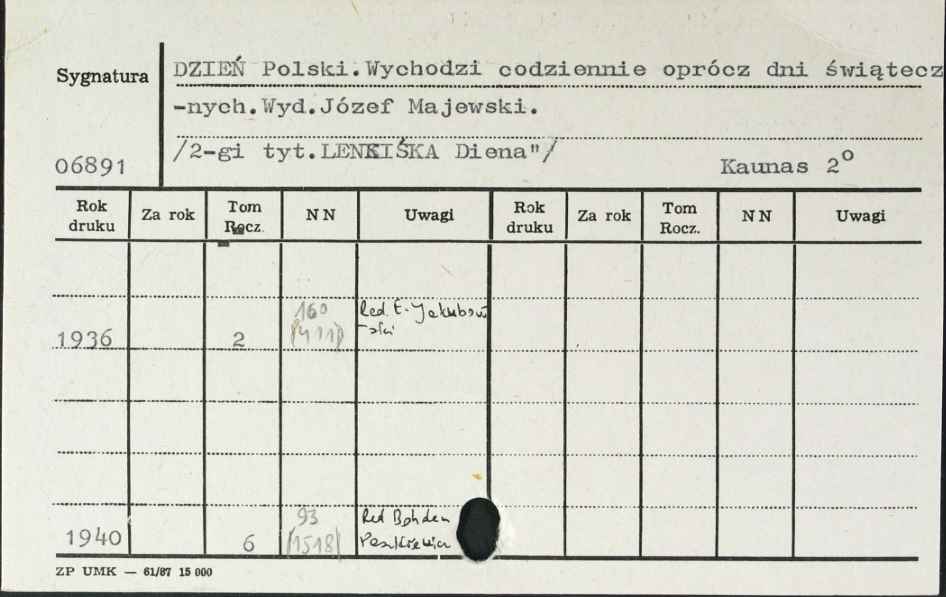 Sygnatura
DZIEŃ Polski.Wychodzi codziennie oprócz dni świątecz
-nych.Wyd.Józef Majewski.
06891
/2-gi tyt.LENKIŠKA Diena"/
Kaunas 2°
Rok druku Za rok Tom Rocz. NN Uwagi Rok druku Za rok Tom Rocz. NN Uwagi
160 Red. E. Jakubow
1936 2 (411) -ski
93 Red Bohdan
1940 6 (1518) Paszkiewicz
ZP UMK — 61/87 15 000